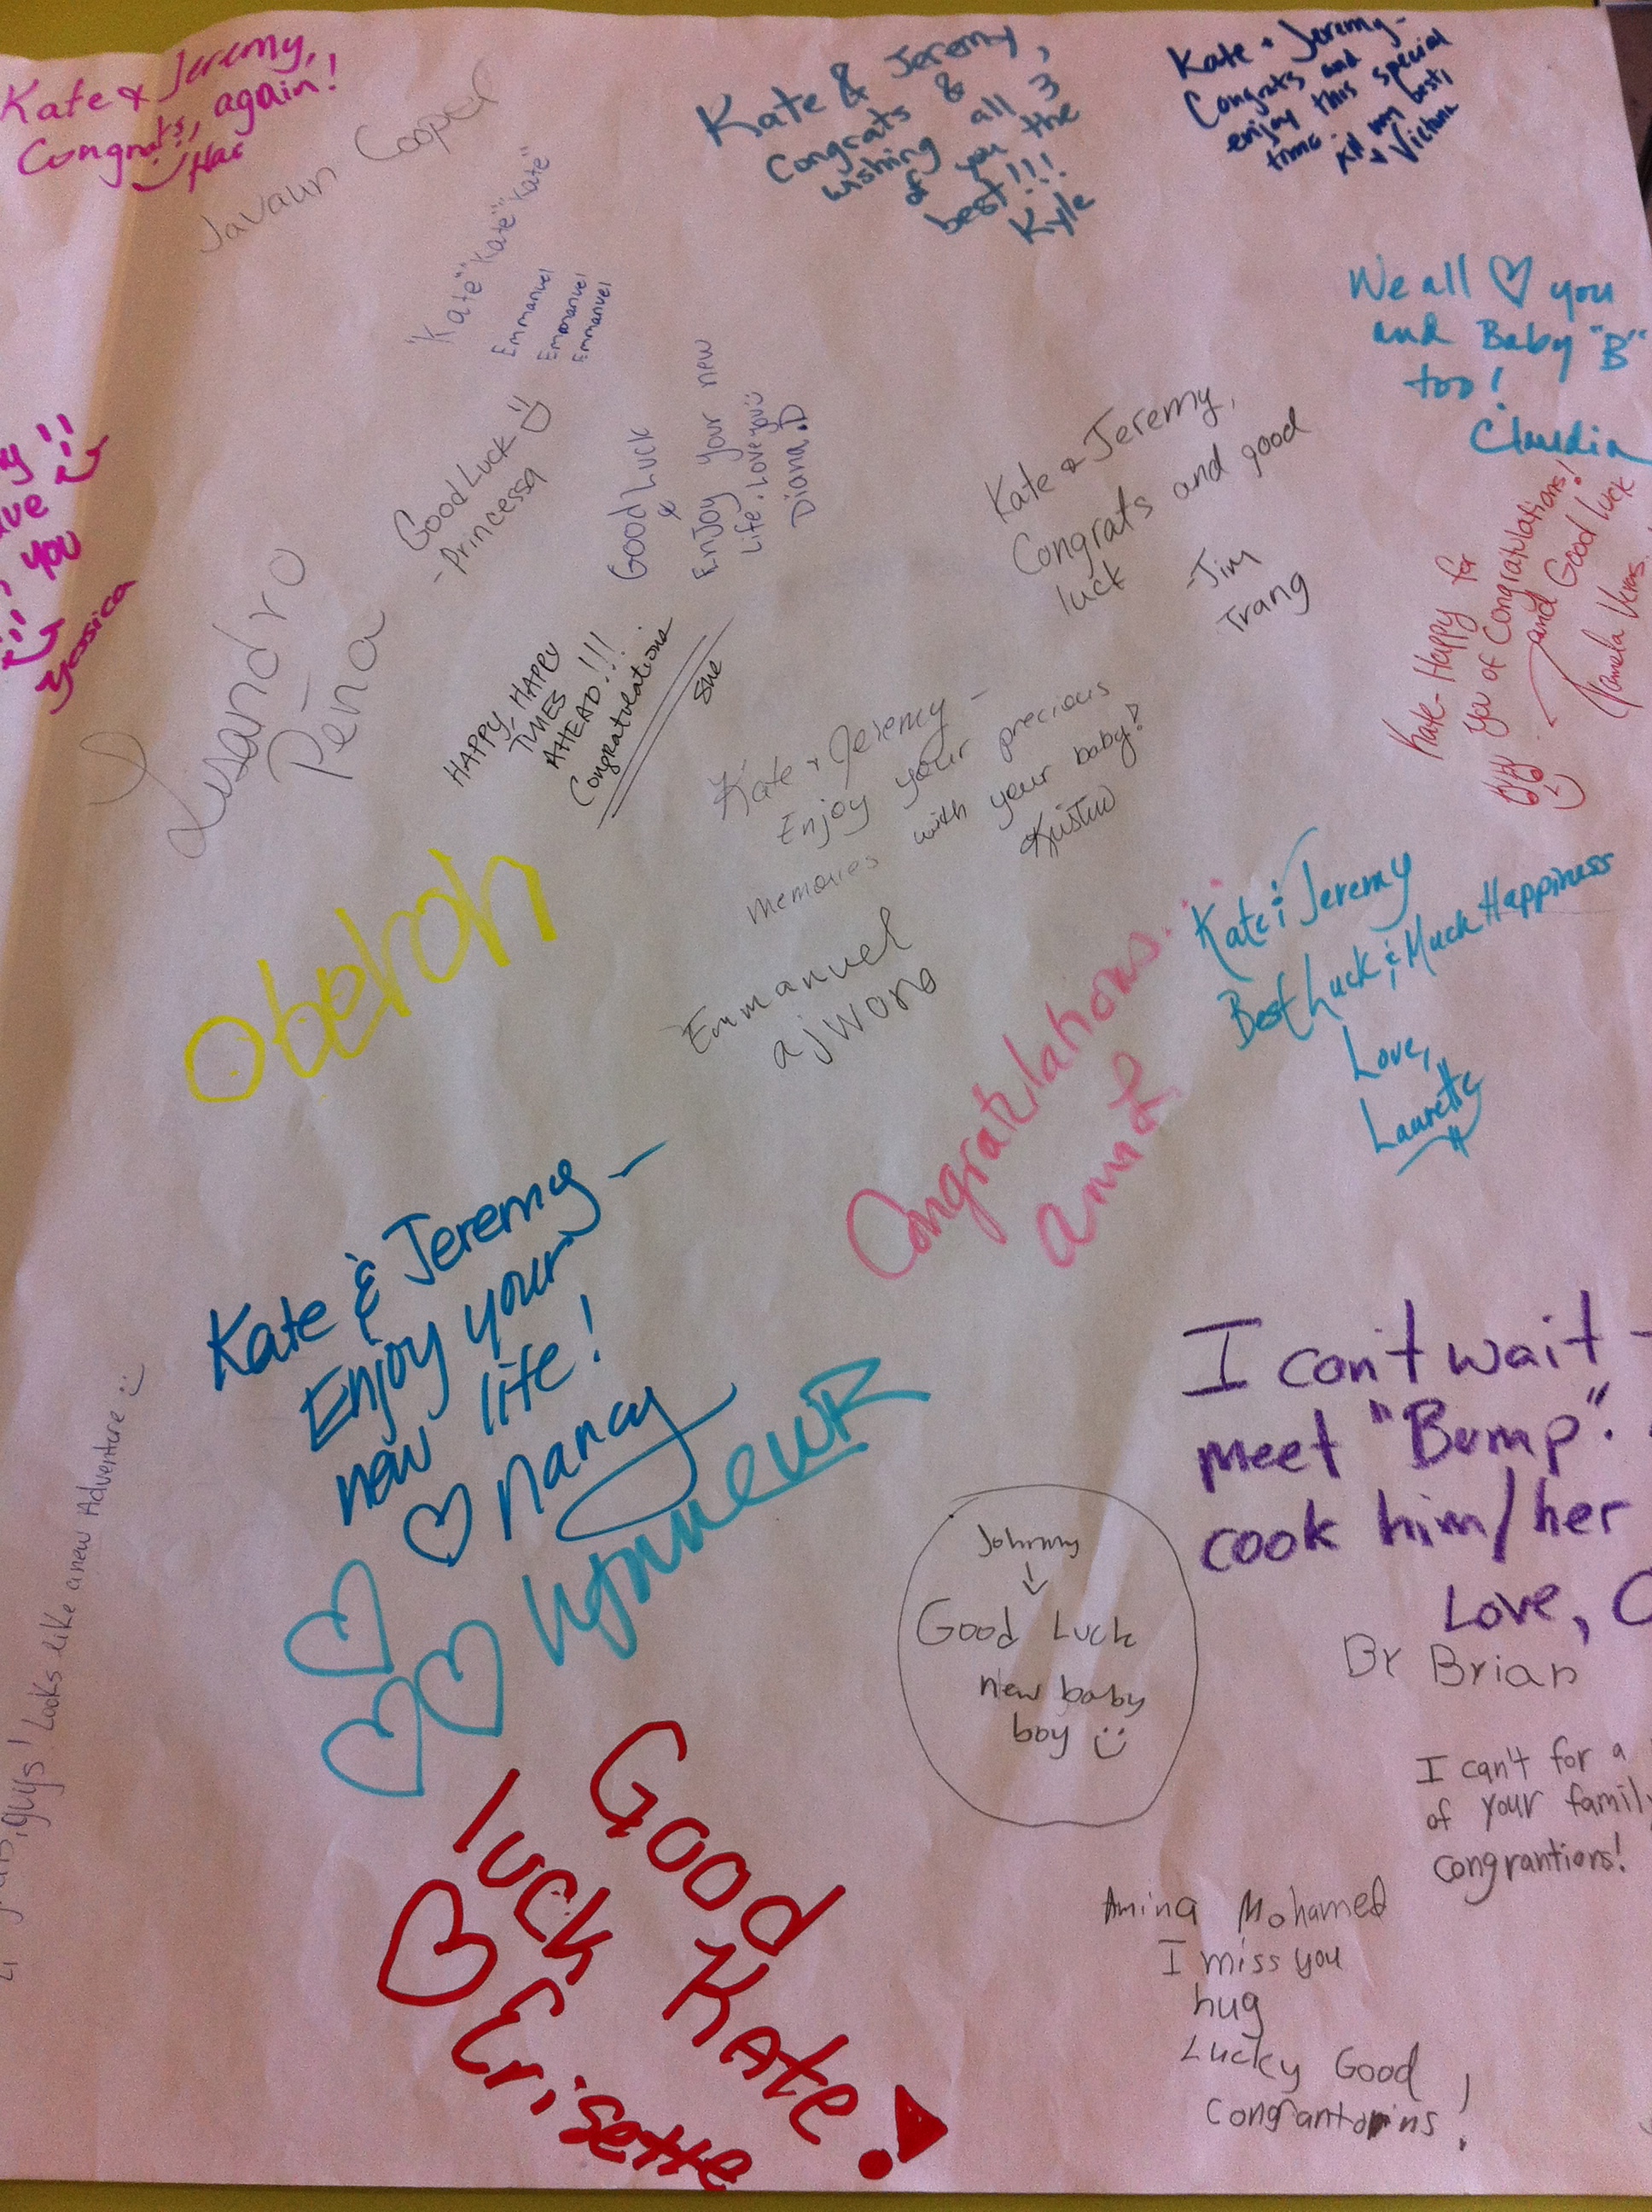 Kate & Jeremy,
Congrats, again!
Javaun Cooper
Kate & Jeremy,
Congrats &
wishing all 3
of you the
best!!!
Kyle
Kate + Jeremy-
Congrats and
enjoy this special
time. All my best,
Victoria
"Kate" "Kate" "Kate"
Emmanuel
Emmanuel
Emmanuel
We all ♡ you
and Baby "B"
too!
Claudia
you
Yessica
Good Luck
-Princessa
Good Luck
&
Enjoy your new
life. Love you
Diana.D
Kate & Jeremy,
Congrats and good
luck
-Jim
Trang
Kate- Happy for
you of Congratulations!
and Good luck
Pamela
Lisandro
Peña
HAPPY, HAPPY
TIMES
AHEAD!!!
Congratulations
Sue
Kate + Jeremy-
Enjoy your precious
memories with your baby!
Kristin
Oberon
Emmanuel
ajwang
Kate & Jeremy
Best Luck & Much Happiness
Love,
Lauretta
Congratulations.
Kate & Jeremy-
Enjoy your
new life!
♡ Nancy
I can't wait
meet "Bump".
cook him/her
Love,
Johnny
↓
Good Luck
new baby
boy
Br Brian
guys! Looks like a new Adventure
I can't for a
of your family
congrantions!
Good
luck Kate!
♡ Erisette
Amina Mohamed
I miss you
hug
Lucky Good
Congrantorins!